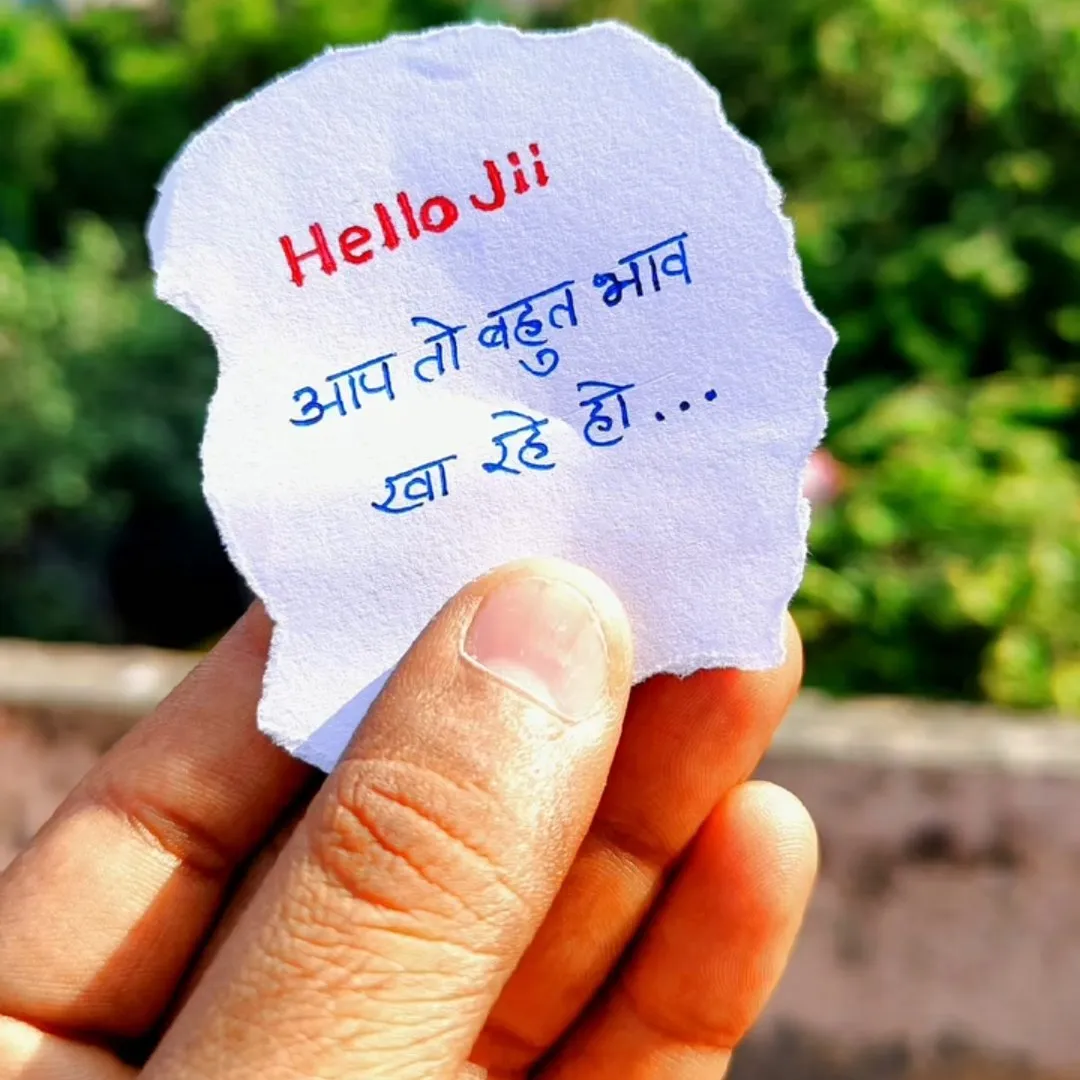 Hello Jii
आप तो बहुत भाव
खा रहे हो...